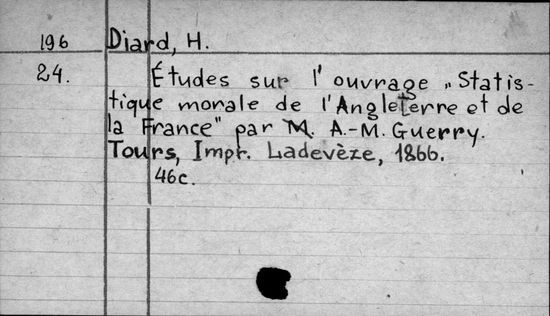 196 Diard, H.
24. Études sur l' ouvrage „Statis-
tique morale de l'Angleterre et de
la France" par M. A.-M. Guerry.
Tours, Impr. Ladevèze, 1866.
46c.